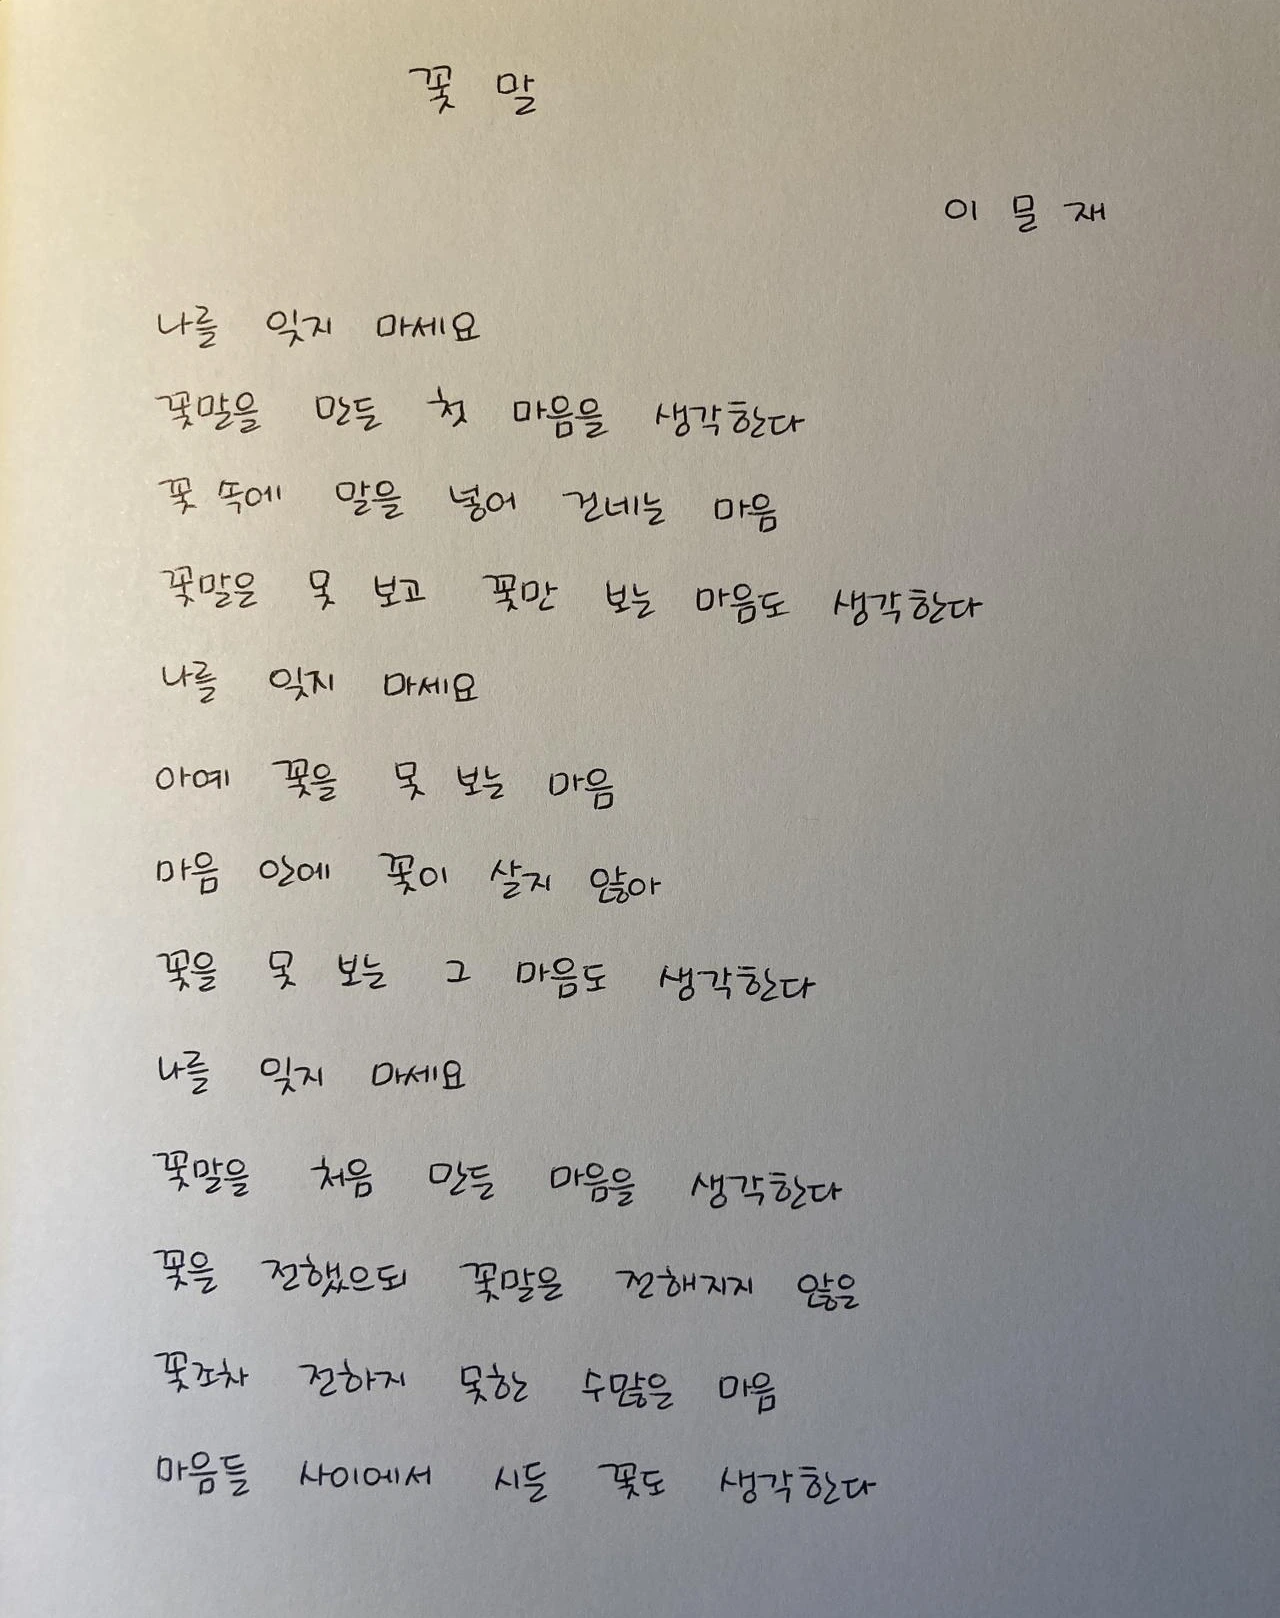 꽃 말
이 문 재
나를 잊지 마세요
꽃말을 만든 첫 마음을 생각한다
꽃 속에 말을 넣어 건네는 마음
꽃말은 못 보고 꽃만 보는 마음도 생각한다
나를 잊지 마세요
아예 꽃을 못 보는 마음
마음 안에 꽃이 살지 않아
꽃을 못 보는 그 마음도 생각한다
나를 잊지 마세요
꽃말을 처음 만든 마음을 생각한다
꽃을 전했으되 꽃말은 전해지지 않은
꽃조차 전하지 못한 수많은 마음
마음들 사이에서 시든 꽃도 생각한다